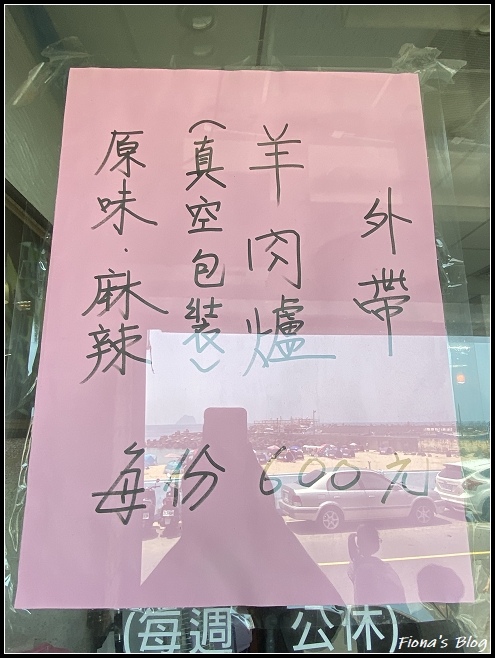 外帶
羊肉爐
(真空包裝)
原味.麻辣
每份600元
(每週 公休)
Fiona's Blog